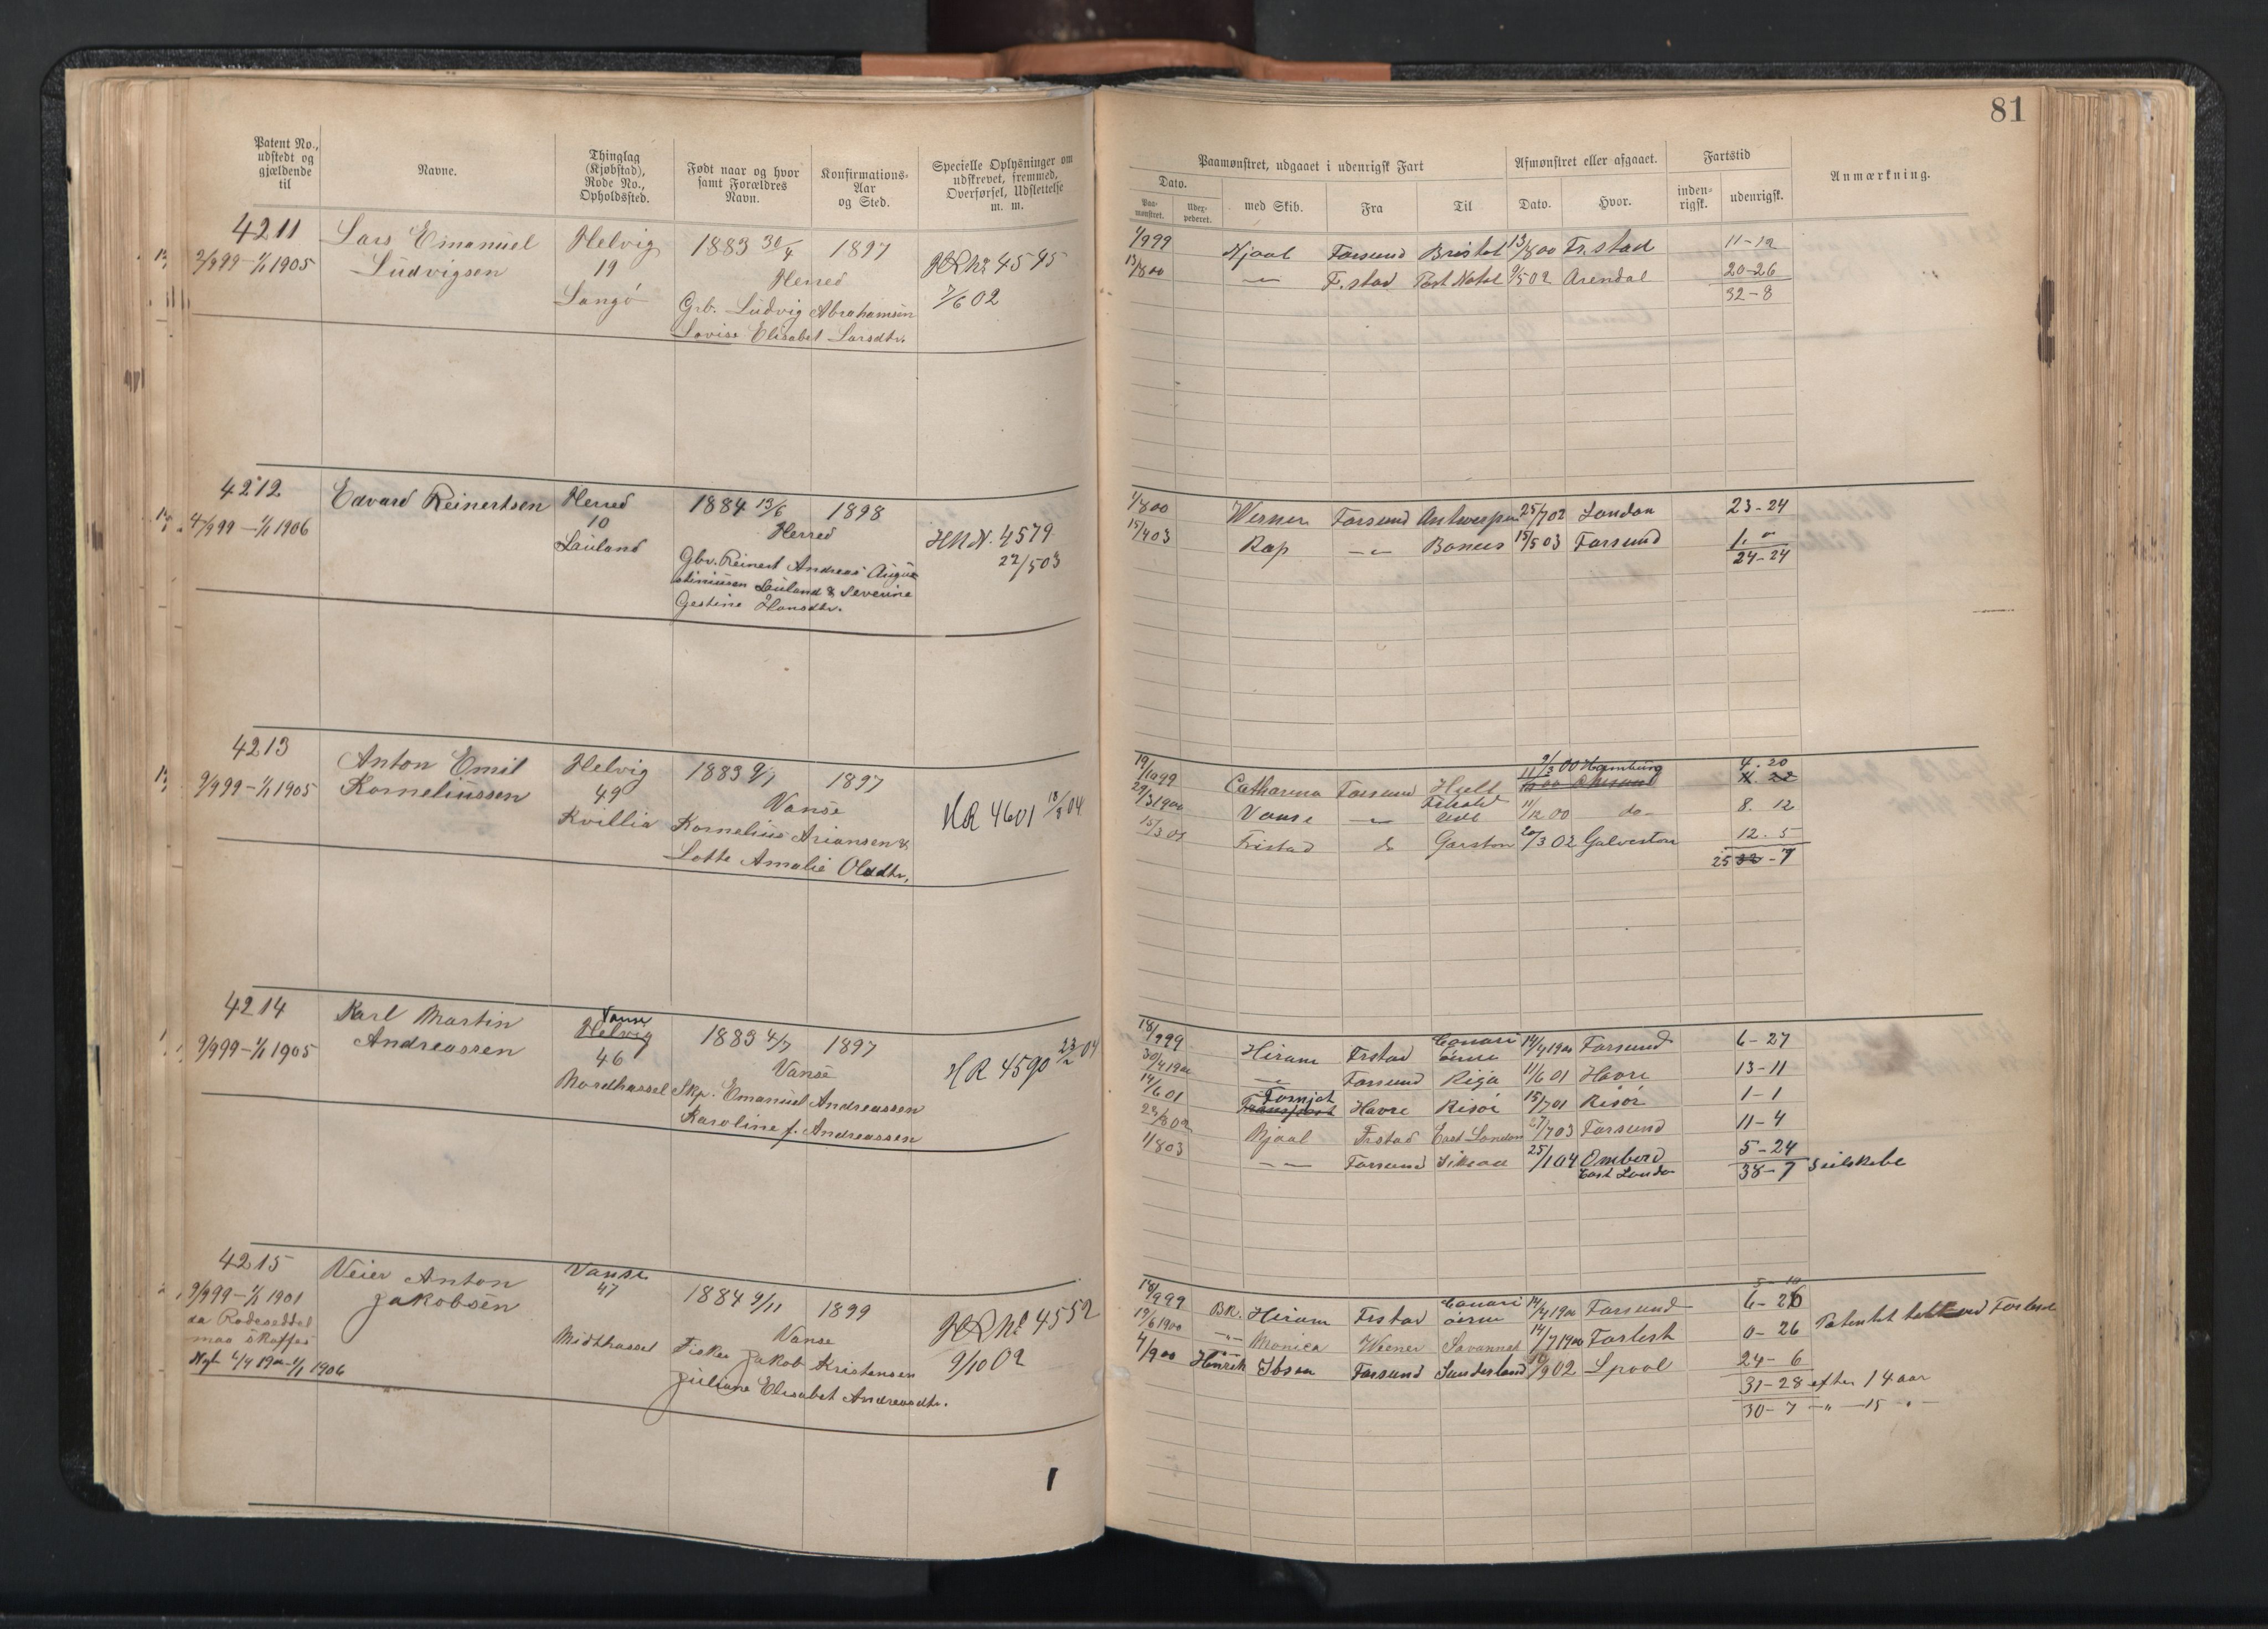 81
Patent No., udstedt og gjældende til
Navne.
Thinglag (Kjøbstad), Rode No., Opholdssted.
Født naar og hvor samt Forældres Navn.
Konfirmations-Aar og Sted.
Specielle Oplysninger om udskrevet, fremmed, Overførsel, Udslettelse m. m.
Paamønstret, udgaaet i udenrigsk Fart
Afmønstret eller afgaaet.
Fartstid
Anmærkning.
Dato.
Paamønstret.
Udexpederet.
med Skib.
Fra
Til
Dato.
Hvor.
indenrigsk.
udenrigsk.
4211
2/999 - 1/1 1905
Lars Emanuel
Ludvigsen
Helvig
19
Langö
1883 30/4
1897
Herred
Grb. Ludvig Abrahamsen
Lovise Elisabet Larsdtr.
HR No 4595
7/6 02
1/999 Hjaal Farsund Bristol 13/800 Fr.stad 11-12
13/800 -"- F.stad Port Natal 9/502 Arendal 20-26
32-8
4212
4/999 - 1/1 1906
Edvard Reinertsen
Herred
10
Lauland
1884 13/6
1898
Herred
Gbr. Reinert Andreas Augu
stinussen Lauland & Severine
Gestine Hansdtr.
HR N. 4579
22/503
1/800 Werner Farsund Antwerpen 25/702 London 23-24
15/403 Rap -"- Boness 15/503 Farsund 1. "
24-24
4213
9/999 - 1/1 1905
Anton Emil
Korneliussen
Helvig
49
Kvillia
1883 9/1
1897
Vanse
Kornelius Ariansen &
Lotte Amalie Olsdtr.
HR 4601 18/3 04
9/3 00 Hamburg 4. 20
19/1099 Catharina Farsund Hull
29/31900 Vanse -"- 11/12 00 do 8. 12
15/3 01 Fristad do Garston 20/3 02 Galveston 12. 5
25 32 - 7
4214
9/999 - 1/1 1905
Karl Martin
Andreassen
Vanse
Helvig
46
Nordhassel
1883 4/7
1897
Vanse
Skp. Emanuel Andreassen
Karoline f. Andreassen
HR 4590 23/2 04
18/999 Hiram Frstad Canari öerne 14/4 1900 Farsund 6-27
30/4 1900 -"- Farsund Riga 11/6 01 Havre 13-11
14/6 01 Fornjot Havre Risör 15/701 Risör 1-1
23/802 Hjaal Frstad East London 27/703 Farsund 11-4
1/803 -"- Farsund 25/1 04 Ombord 5-24
East London 38-7 Seilskibe
4215
9/999 - 1/1 1901
da Rodeseddel
maa skaffes
Nyt 6/4 1900-1/1 1906
Veier Anton
Jakobsen
Vanse
47
Midthassel
1884 9/11
1899
Vanse
Fisker Jakob Kristensen
Juliane Elisabet Andreasdtr.
HR No 4552
9/10 02
5-10
18/999 BK. Hiram Frstad Canari öerne 14/4 1900 Farsund 6-26
19/6 1900 -"- Monica Weener Savannah 14/7 1900 Forlist 0-26 Patentet tabt ved Forliset
4/900 Henrik Ibsen Farsund Sunderland /902 Lpool 24-6
31-28 efter 14 aar
30-7 -"- 15 -"-